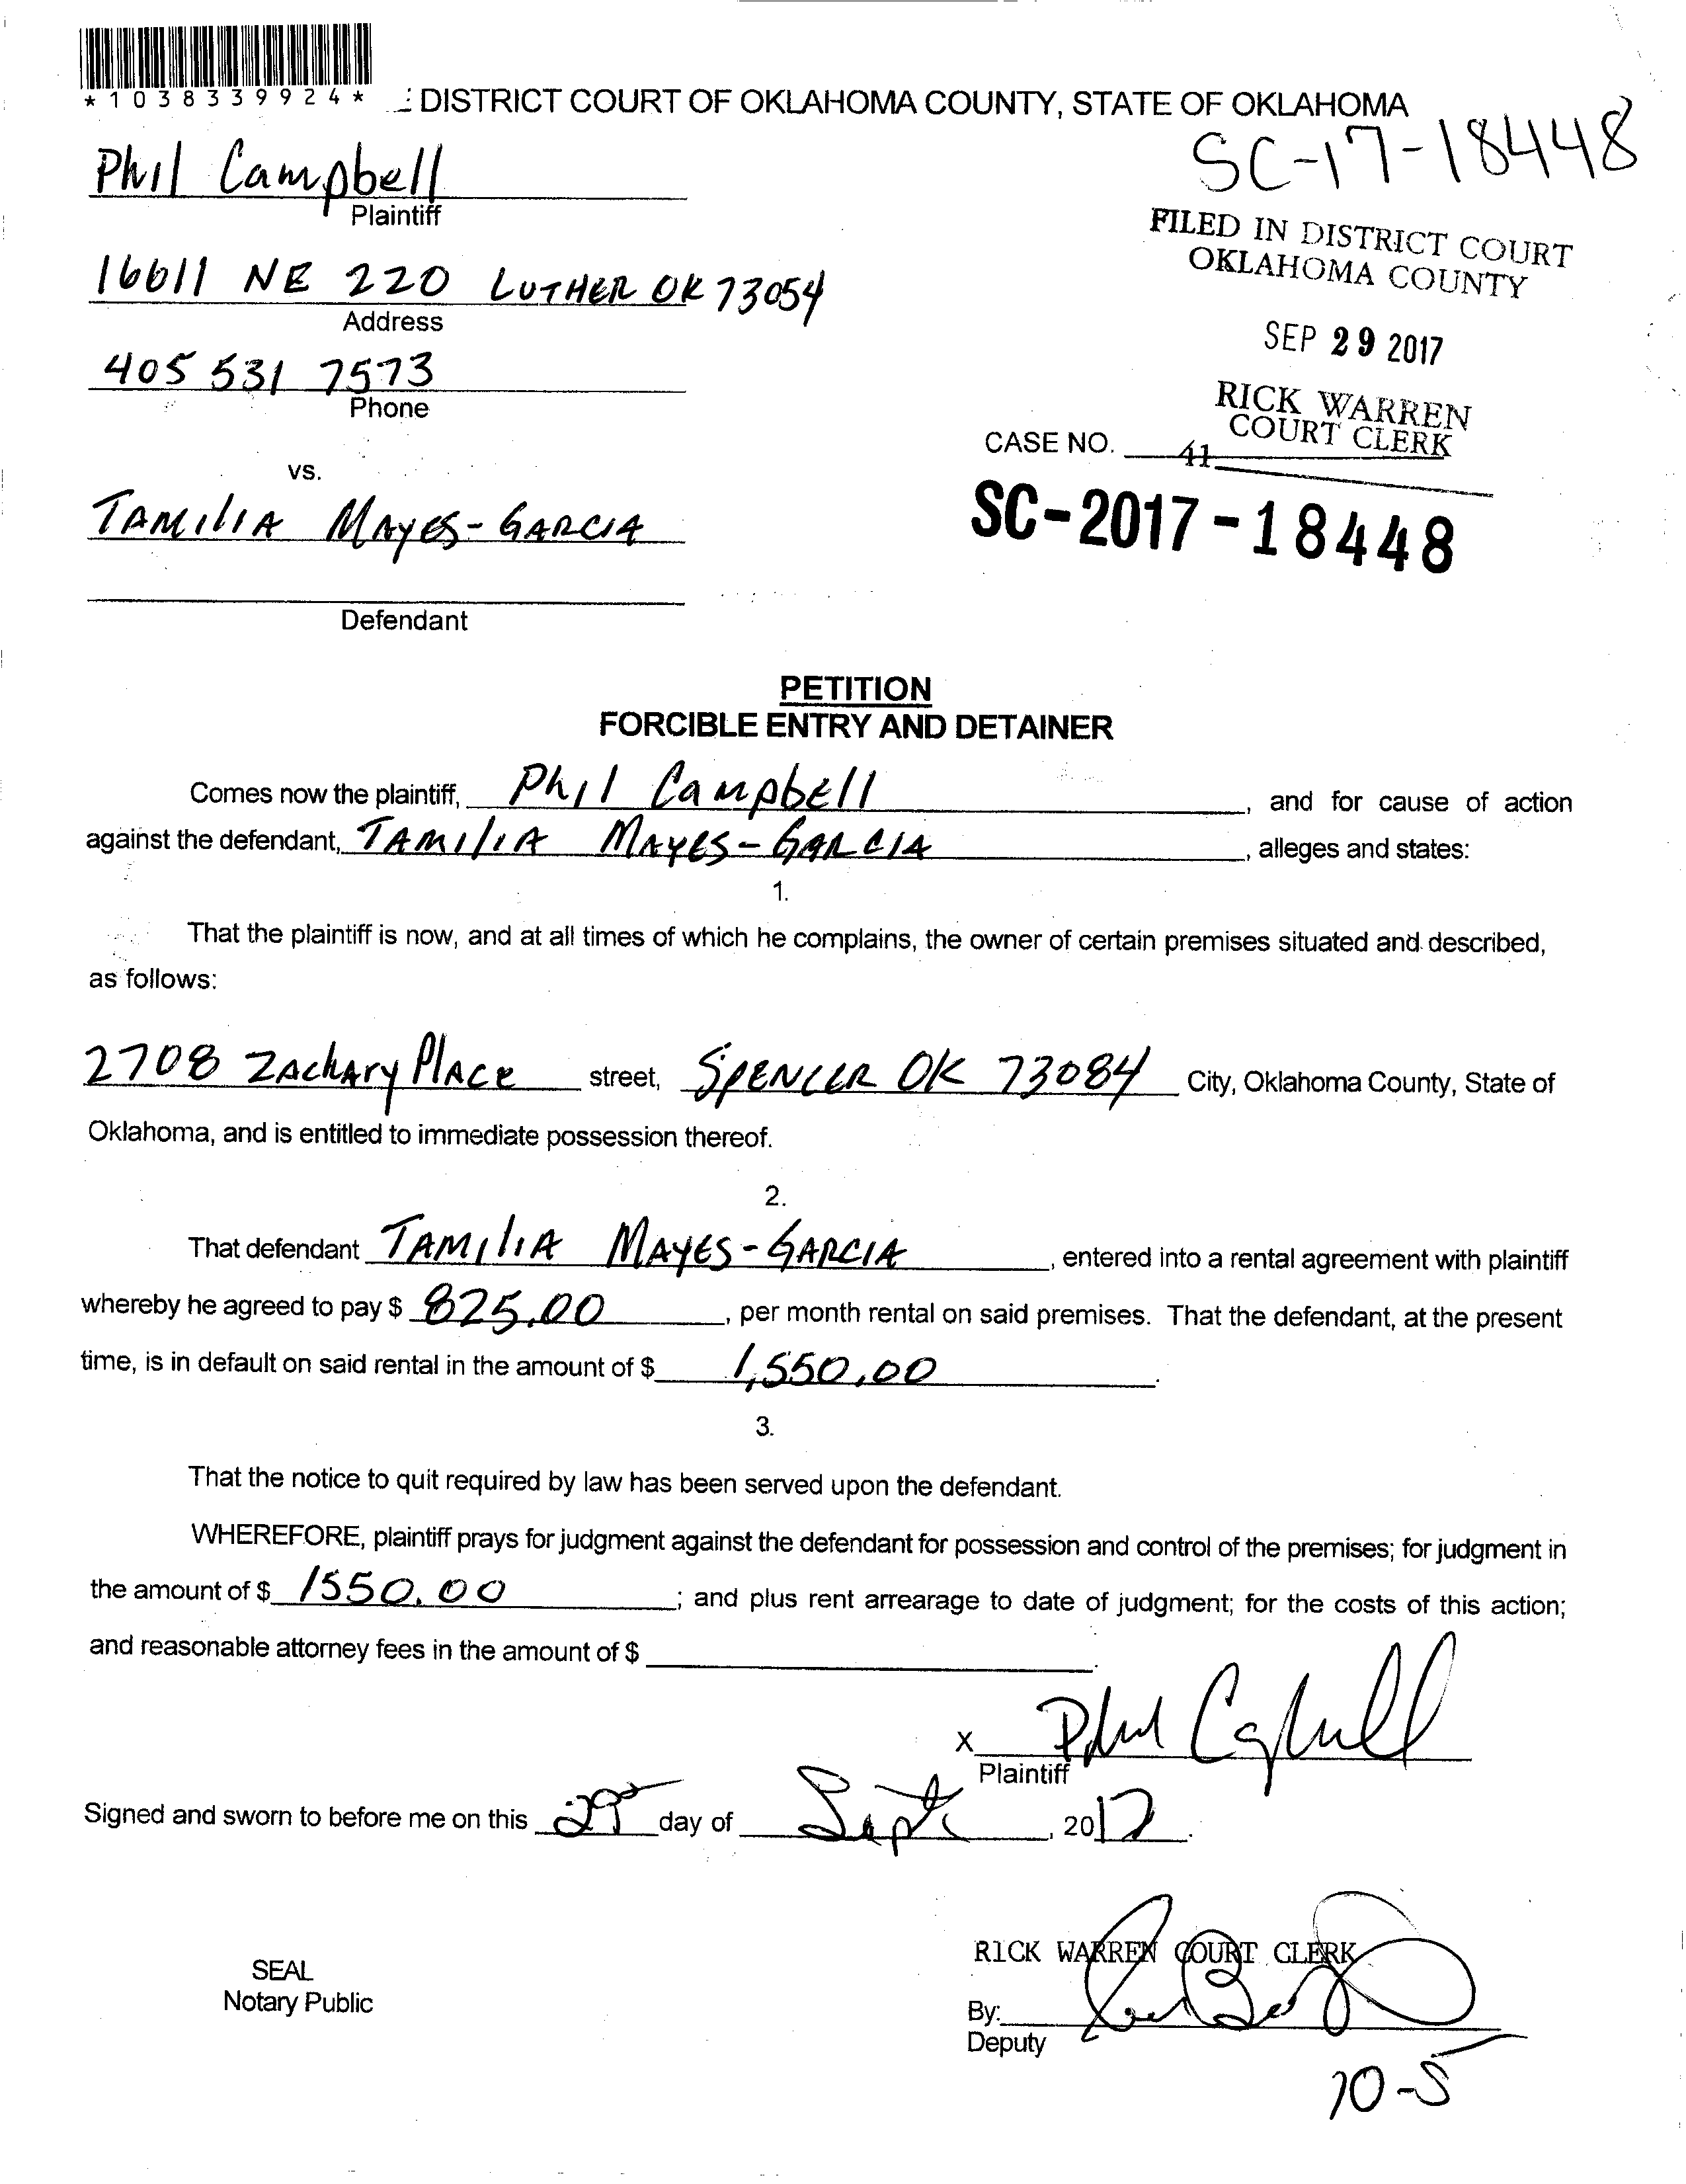 *1038339924*
DISTRICT COURT OF OKLAHOMA COUNTY, STATE OF OKLAHOMA
SC-17-18448
Phil Campbell
Plaintiff
FILED IN DISTRICT COURT
OKLAHOMA COUNTY
16611 NE 220 LUTHER OK 73054
Address
SEP 29 2017
405 531 7573
Phone
RICK WARREN
COURT CLERK
CASE NO.
41
vs.
TAMILIA MAYES-GARCIA
SC-2017-18448
Defendant
PETITION
FORCIBLE ENTRY AND DETAINER
Comes now the plaintiff, Phil Campbell, and for cause of action
against the defendant, TAMILIA MAYES-GARCIA, alleges and states:
1.
That the plaintiff is now, and at all times of which he complains, the owner of certain premises situated and described,
as follows:
2708 ZAchAry PlAce street, SPENCER OK 73084 City, Oklahoma County, State of
Oklahoma, and is entitled to immediate possession thereof.
2.
That defendant TAMILIA MAYES-GARCIA, entered into a rental agreement with plaintiff
whereby he agreed to pay $ 825.00, per month rental on said premises. That the defendant, at the present
time, is in default on said rental in the amount of $ 1,550.00.
3.
That the notice to quit required by law has been served upon the defendant.
WHEREFORE, plaintiff prays for judgment against the defendant for possession and control of the premises; for judgment in
the amount of $ 1550.00; and plus rent arrearage to date of judgment; for the costs of this action;
and reasonable attorney fees in the amount of $
X Phil Campbell
Plaintiff
Signed and sworn to before me on this 29 day of Sept, 2017.
RICK WARREN COURT CLERK
SEAL
Notary Public
By:
Deputy
10-5